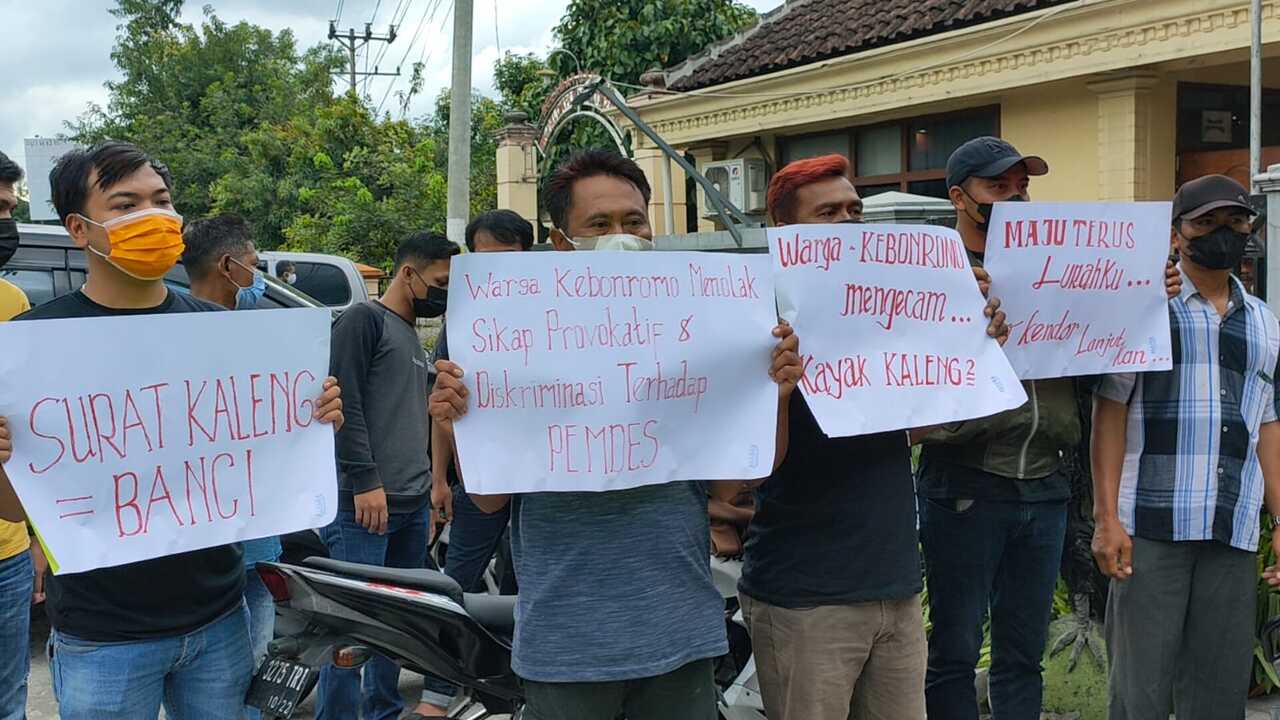 SURAT KALENG
= BANCI
Warga Kebonromo Menolak
Sikap Provokatif &
Diskriminasi Terhadap
PEMDES
Warga - KEBONROMO
mengecam...
Kayak KALENG2
MAJU TERUS
LurahKu...
Kendor Lanjut
kan...
3275 TRI
10/22